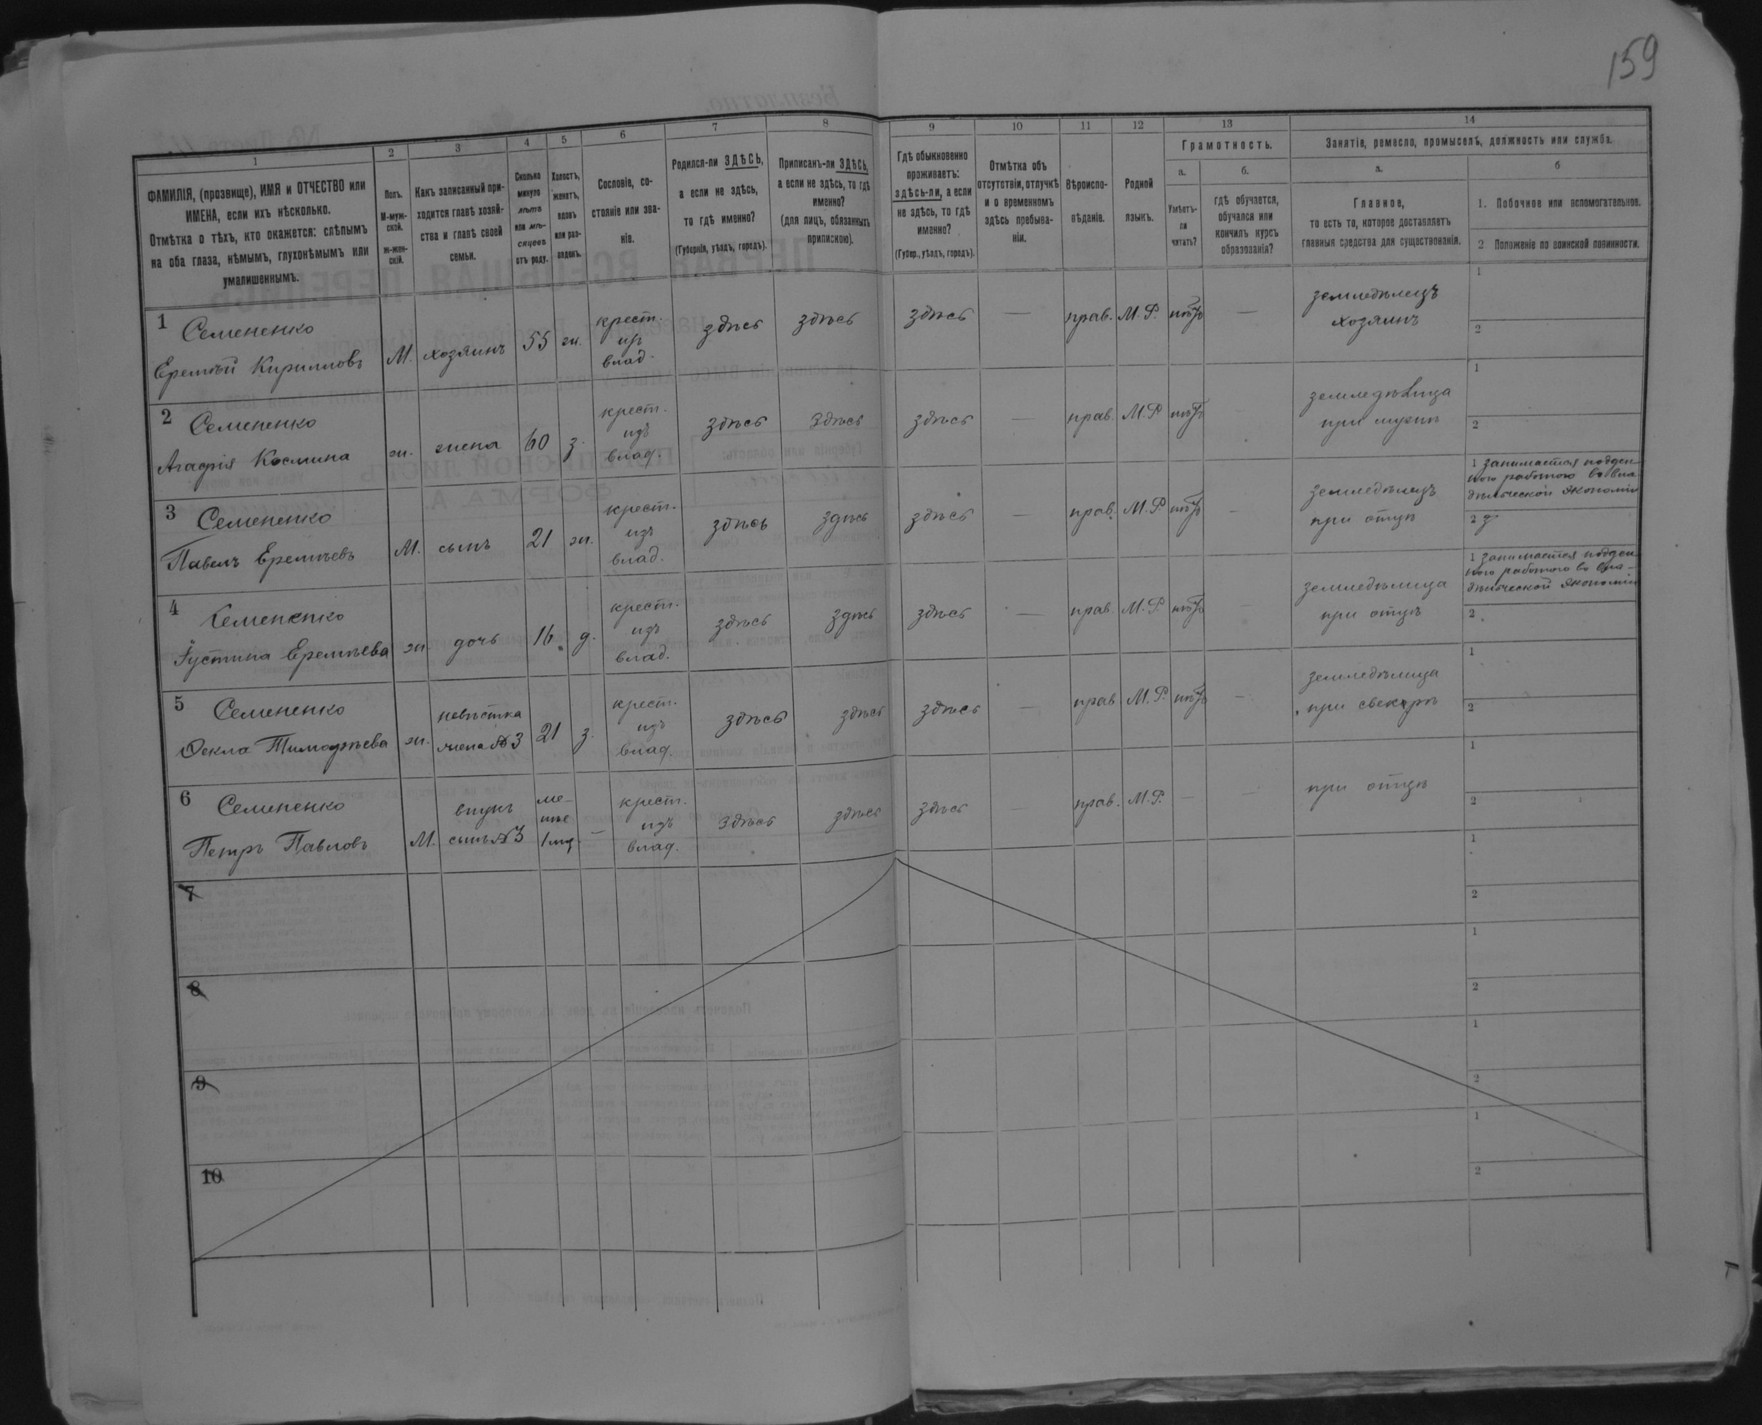 159
1
ФАМИЛІЯ, (прозвище), ИМЯ и ОТЧЕСТВО или
ИМЕНА, если ихъ нѣсколько.
Отмѣтка о тѣхъ, кто окажется: слѣпымъ
на оба глаза, нѣмымъ, глухонѣмымъ или
умалишеннымъ.
2
Полъ.
М-муж-
ской.
ж-жен-
скій.
3
Какъ записанный при-
ходится главѣ хозяй-
ства и главѣ своей
семьи.
4
Сколько
минуло
лѣтъ
или мѣ-
сяцевъ
отъ роду.
5
Холостъ,
женатъ,
вдовъ
или раз-
веденъ.
6
Сословіе, со-
стояніе или зва-
ніе.
7
Родился-ли ЗДѢСЬ,
а если не здѣсь,
то гдѣ именно?
(Губернія, уѣздъ, городъ).
8
Приписанъ-ли ЗДѢСЬ,
а если не здѣсь, то гдѣ
именно?
(для лицъ, обязанныхъ
припискою).
9
Гдѣ обыкновенно
проживаетъ:
здѣсь-ли, а если
не здѣсь, то гдѣ
именно?
(Губер., уѣздъ, городъ).
10
Отмѣтка объ
отсутствіи, отлучкѣ
и о временномъ
здѣсь пребыва-
ніи.
11
Вѣроиспо-
вѣданіе.
12
Родной
языкъ.
13
Грамотность.
а.
Умѣетъ-
ли
читать?
б.
гдѣ обучается,
обучался или
кончилъ курсъ
образованія?
14
Занятіе, ремесло, промыселъ, должность или служба.
а.
Главное,
то есть то, которое доставляетъ
главныя средства для существованія.
б
1. Побочное или вспомогательное.
2 Положеніе по воинской повинности.
1 Семененко
Еремѣй Кирилловъ
М. хозяинъ 55 ж.
крест.
изъ
влад.
здѣсь здѣсь здѣсь — прав. М.Р. нѣтъ —
земледѣлецъ
хозяинъ
1
2
2 Семененко
Агафія Космина
ж. жена 60 з.
крест.
изъ
влад.
здѣсь здѣсь здѣсь — прав. М.Р. нѣтъ —
земледѣлица
при мужѣ
1
2
3 Семененко
Павелъ Еремѣевъ
М. сынъ 21 ж.
крест.
изъ
влад.
здѣсь здѣсь здѣсь — прав. М.Р. нѣтъ —
земледѣлецъ
при отцѣ
1 занимается поден-
ною работою во вла-
дѣльческой экономіи
2
4 Семененко
Іустина Еремѣева
ж. дочь 16 д.
крест.
изъ
влад.
здѣсь здѣсь здѣсь — прав. М.Р. нѣтъ —
земледѣлица
при отцѣ
1 занимается поден-
ною работою во вла-
дѣльческой экономіи
2
5 Семененко
Фекла Тимофѣева
ж.
невѣстка
жена №3
21 з.
крест.
изъ
влад.
здѣсь здѣсь здѣсь — прав. М.Р. нѣтъ —
земледѣлица
при свекрѣ
1
2
6 Семененко
Петръ Павловъ
М.
внукъ
сынъ №3
ме-
нѣе
1 мѣ.
—
крест.
изъ
влад.
здѣсь здѣсь здѣсь — прав. М.Р. — —
при отцѣ
1
2
7
1
2
8
1
2
9
1
2
10
1
2